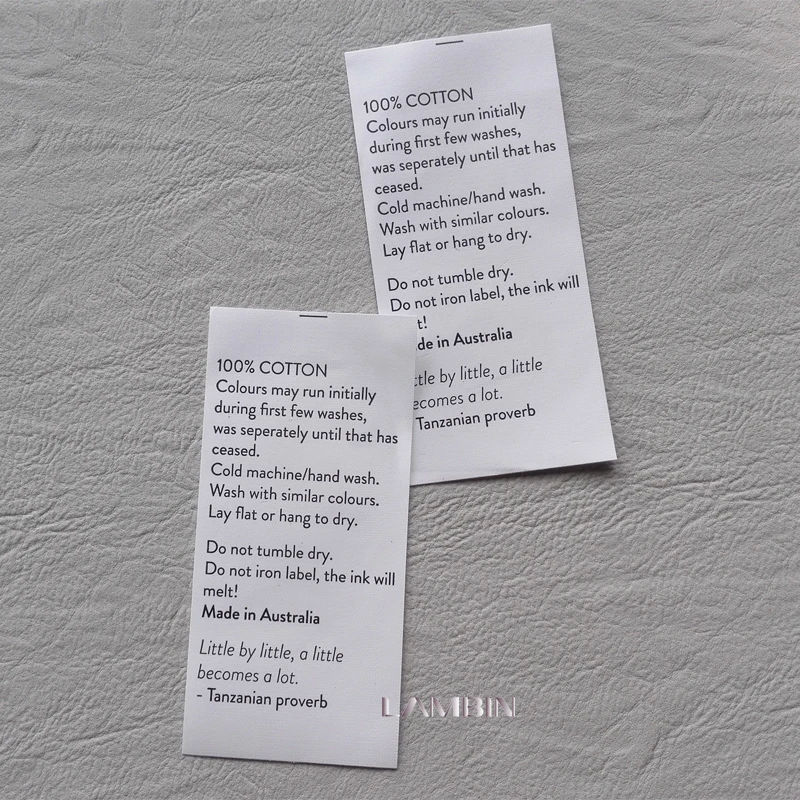 100% COTTON
Colours may run initially
during first few washes,
was seperately until that has
ceased.
Cold machine/hand wash.
Wash with similar colours.
Lay flat or hang to dry.
Do not tumble dry.
Do not iron label, the ink will
t!
de in Australia
ttle by little, a little
ecomes a lot.
Tanzanian proverb
100% COTTON
Colours may run initially
during first few washes,
was seperately until that has
ceased.
Cold machine/hand wash.
Wash with similar colours.
Lay flat or hang to dry.
Do not tumble dry.
Do not iron label, the ink will
melt!
Made in Australia
Little by little, a little
becomes a lot.
- Tanzanian proverb
LAMBIN